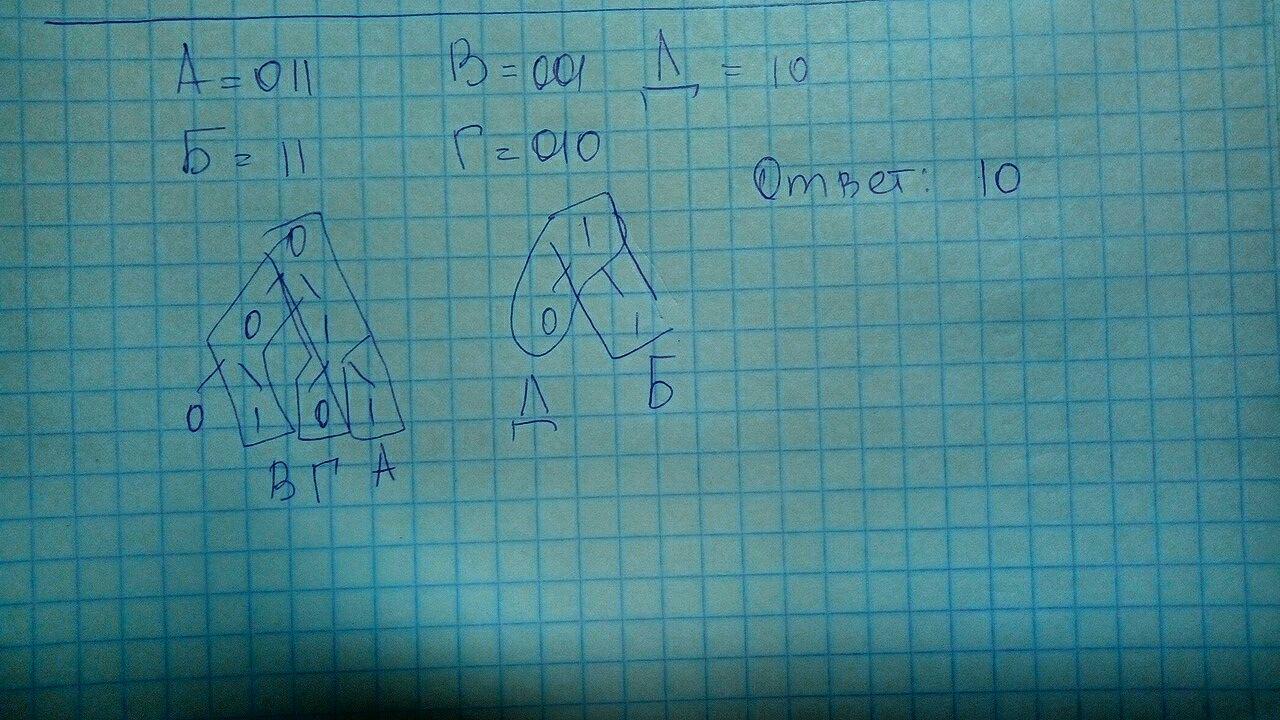 А = 011 В = 001 Д = 10
Б = 11 Г = 010
Ответ: 10
0 1
0 1 0 1
0 1 0 1
Д Б
В Г А